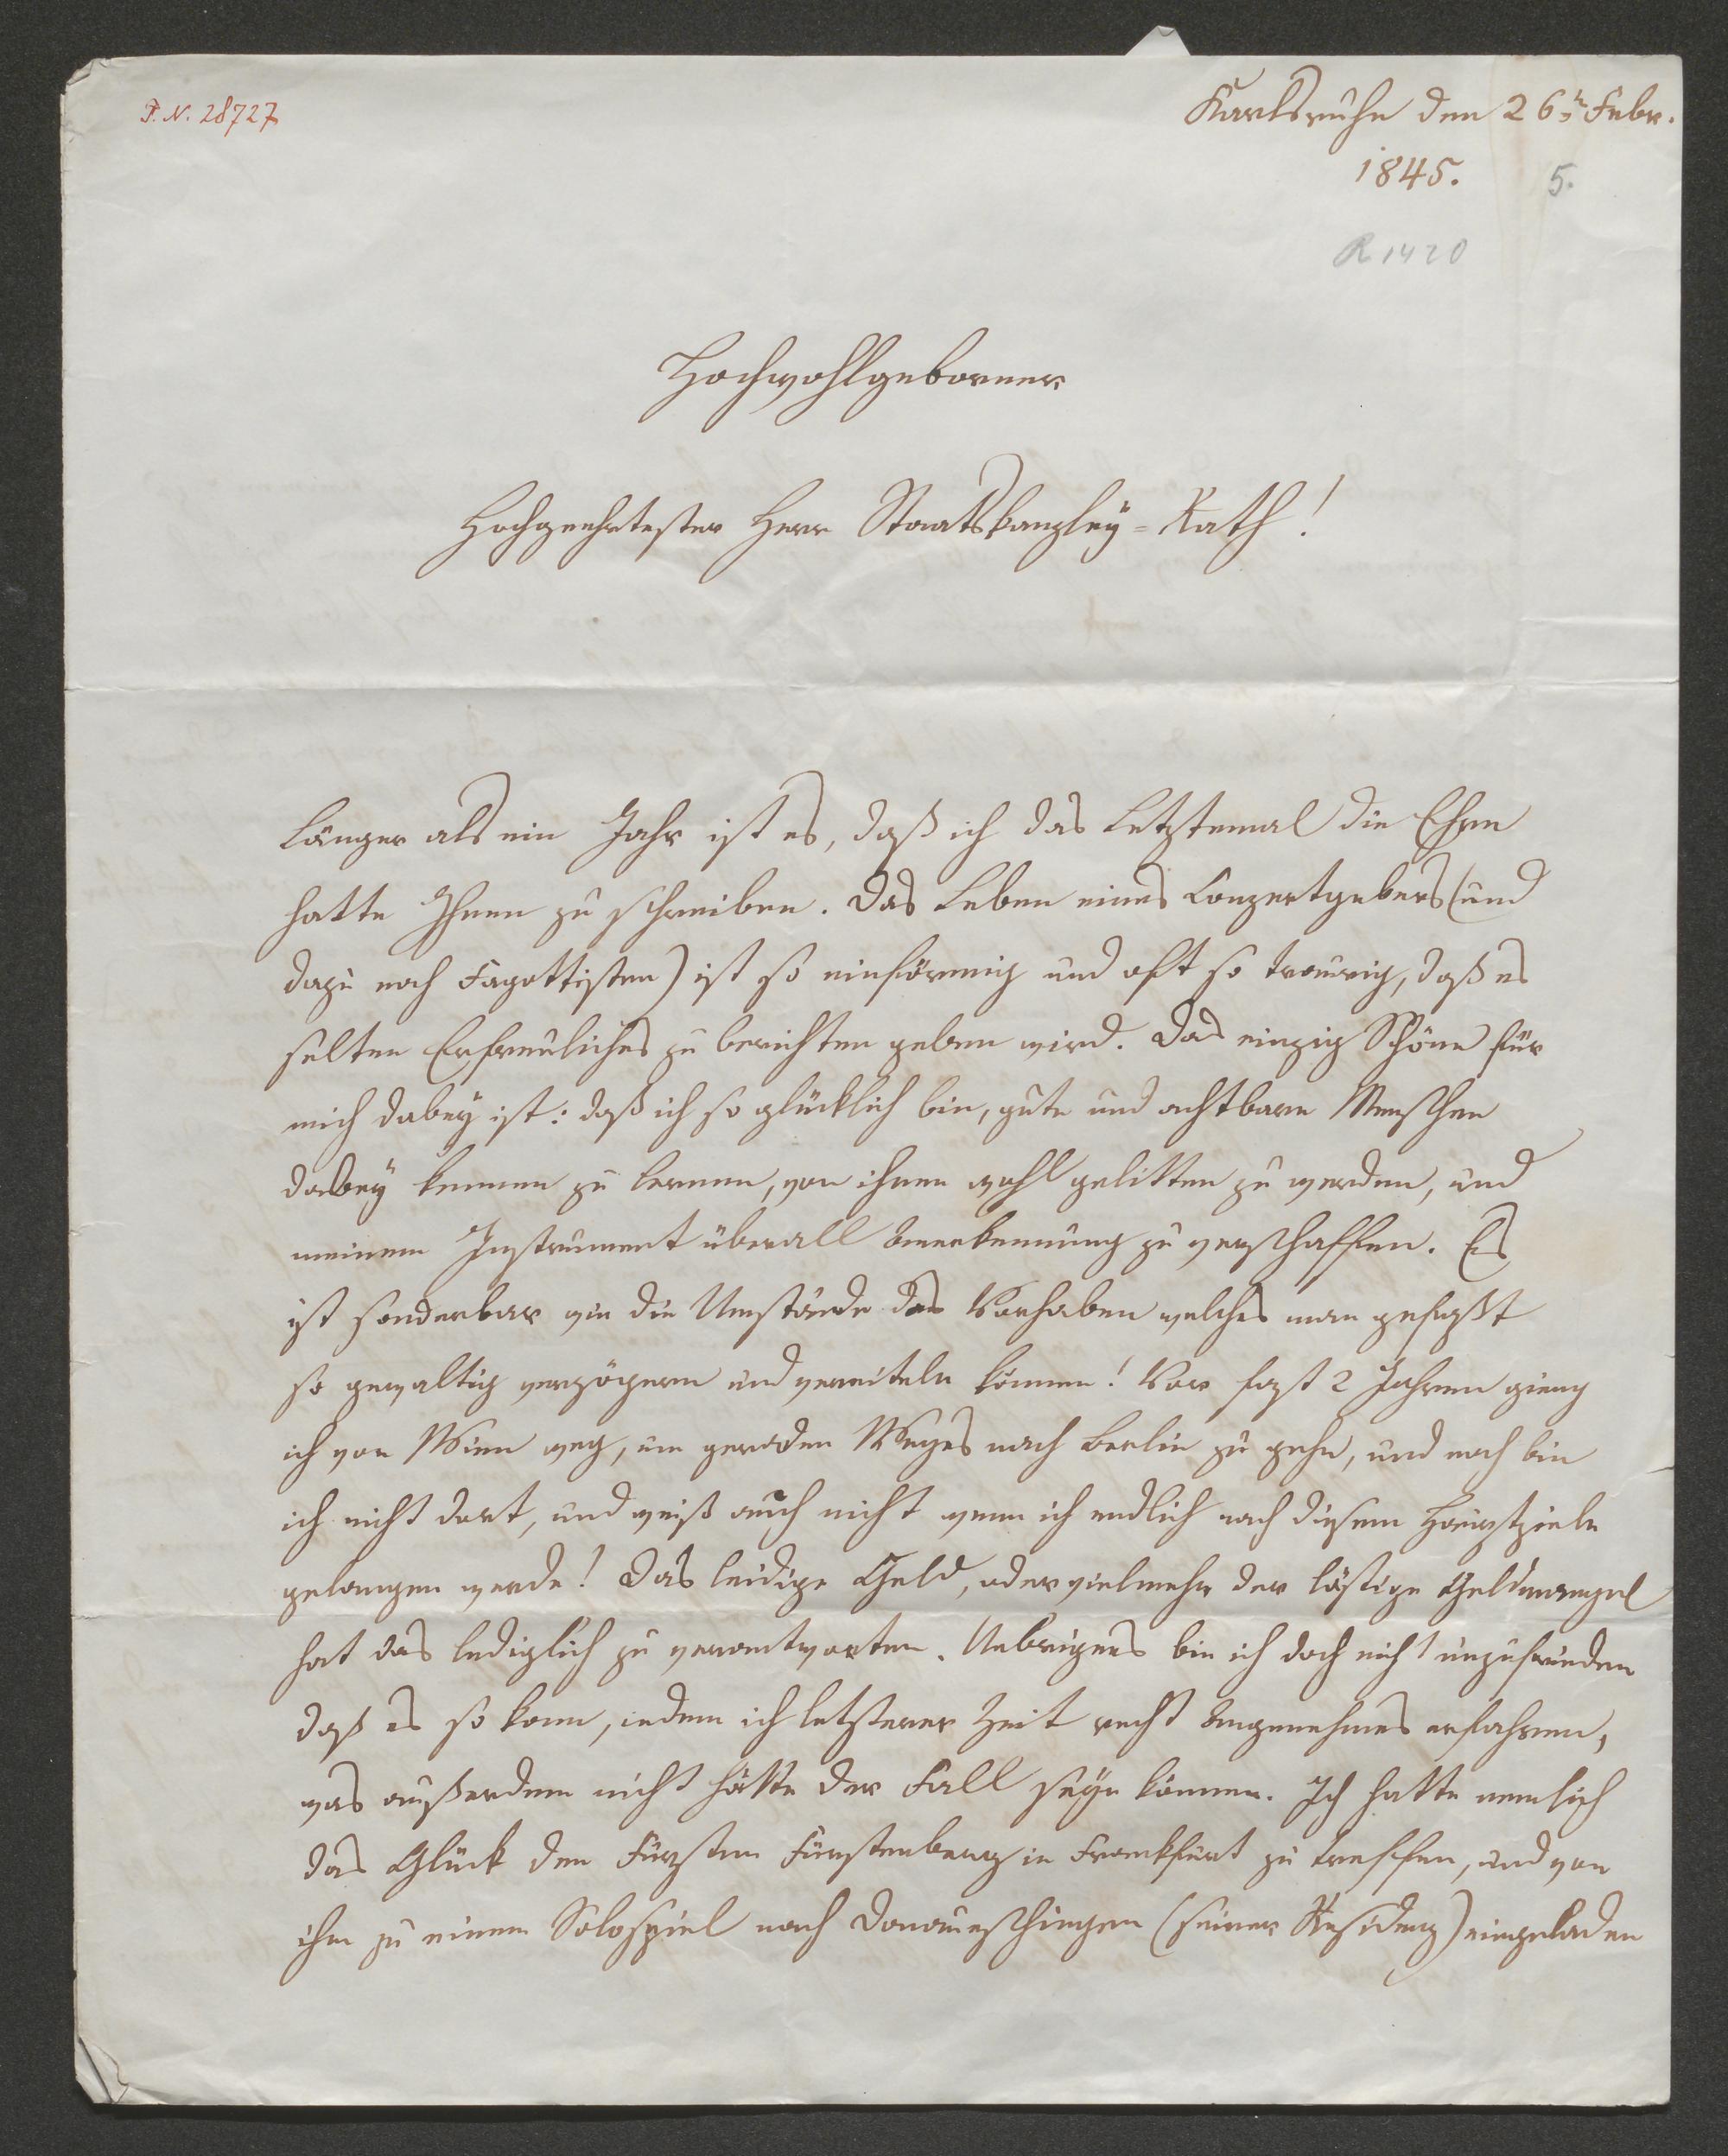 I. N. 28727
Karlsruhe den 26t Febr.
1845.
5.
R 1420
Hochwohlgeborner
Hochgeehrtester Herr Staatskanzley=Rath!
Länger als ein Jahr ist es, daß ich das Letztemal die Ehre
hatte Ihnen zu schreiben. Das Leben eines Conzertgebers (und
dazu noch Fagottisten) ist so einförmig und oft so traurig, daß es
selten Erfreuliches zu berichten geben wird. Das einzig Schöne für
mich dabey ist: daß ich so glücklich bin, gute und achtbare Menschen
dabey kennen zu lernen, von ihnen wohl gelitten zu werden, und
meinem Instrument überall Anerkennung zu verschaffen. Es
ist sonderbar wie die Umstände das Vorhaben welches man gefaßt
so gewaltig verzögern und vereiteln können! Vor fast 2 Jahren gieng
ich von Wien weg, um geraden Weges nach Berlin zu gehn, und noch bin
ich nicht dort, und weiß auch nicht wenn ich endlich nach diesem Hauptziele
gelangen werde! Das leidige Geld, oder vielmehr der lästige Geldmangel
hat das lediglich zu verantworten. Uebrigens bin ich doch nicht unzufrieden
daß es so kam, indem ich letzterer Zeit recht Angenehmes erfahren,
was außerdem nicht hätte der Fall seyn können. Ich hatte nemlich
das Glück den Fürsten Fürstenberg in Frankfurt zu treffen, und von
ihm zu einem Solospiel nach Donaueschingen (seiner Residenz) eingeladen